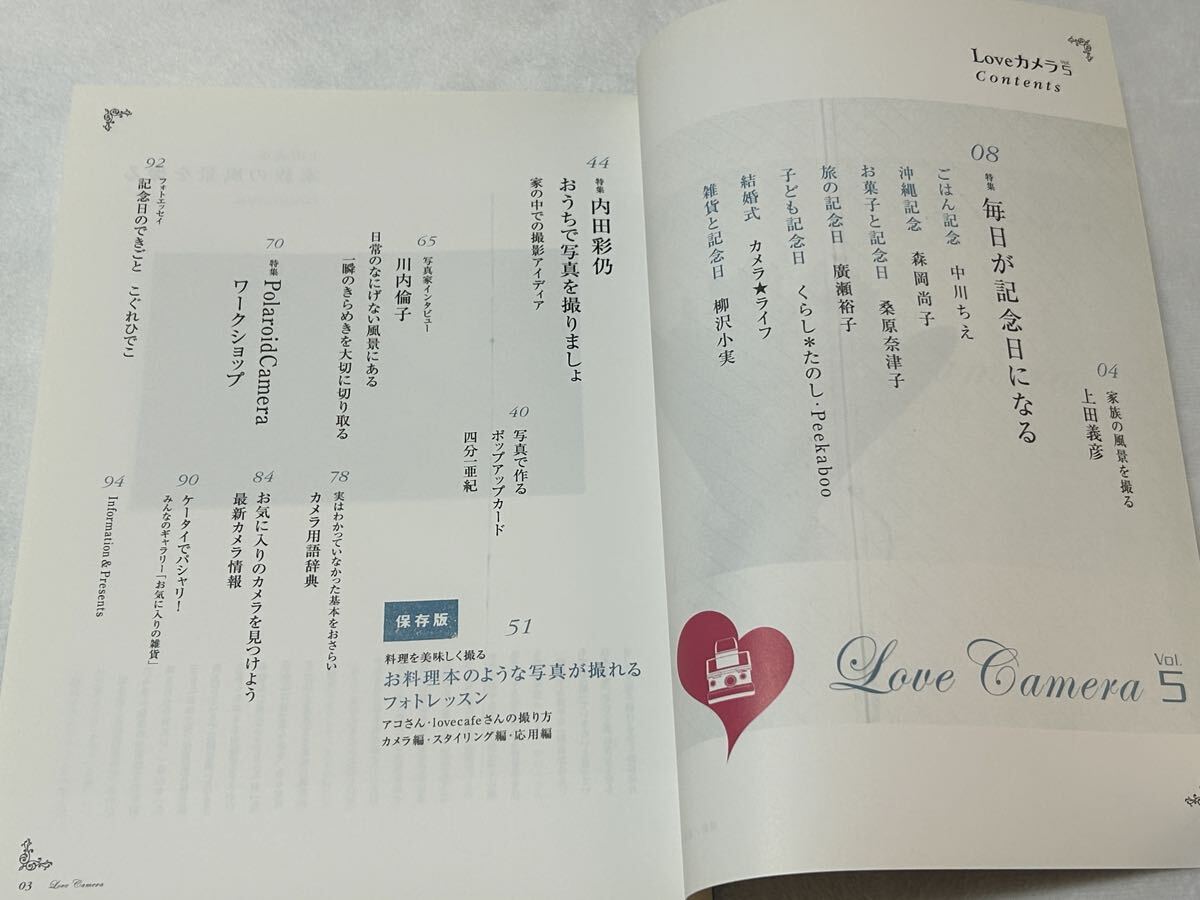 Loveカメラ vol.5
Contents
04
家族の風景を撮る
上田義彦
08
特集
毎日が記念日になる
ごはん記念 中川ちえ
沖縄記念 森岡尚子
お菓子と記念日 桑原奈津子
旅の記念日 廣瀬裕子
子ども記念日 くらし＊たのし・Peekaboo
結婚式 カメラ★ライフ
雑貨と記念日 柳沢小実
Love Camera Vol. 5
40
写真で作る
ポップアップカード
四分一亜紀
44
特集 内田彩仍
おうちで写真を撮りましょ
家の中での撮影アイディア
51
保存版
料理を美味しく撮る
お料理本のような写真が撮れる
フォトレッスン
アコさん・lovecafeさんの撮り方
カメラ編・スタイリング編・応用編
65
写真家インタビュー
川内倫子
日常のなにげない風景にある
一瞬のきらめきを大切に切り取る
70
特集 PolaroidCamera
ワークショップ
78
実はわかっていなかった基本をおさらい
カメラ用語辞典
84
お気に入りのカメラを見つけよう
最新カメラ情報
90
ケータイでパシャリ！
みんなのギャラリー「お気に入りの雑貨」
92
フォトエッセイ
記念日のできごと こぐれひでこ
94
Information & Presents
03 Love Camera